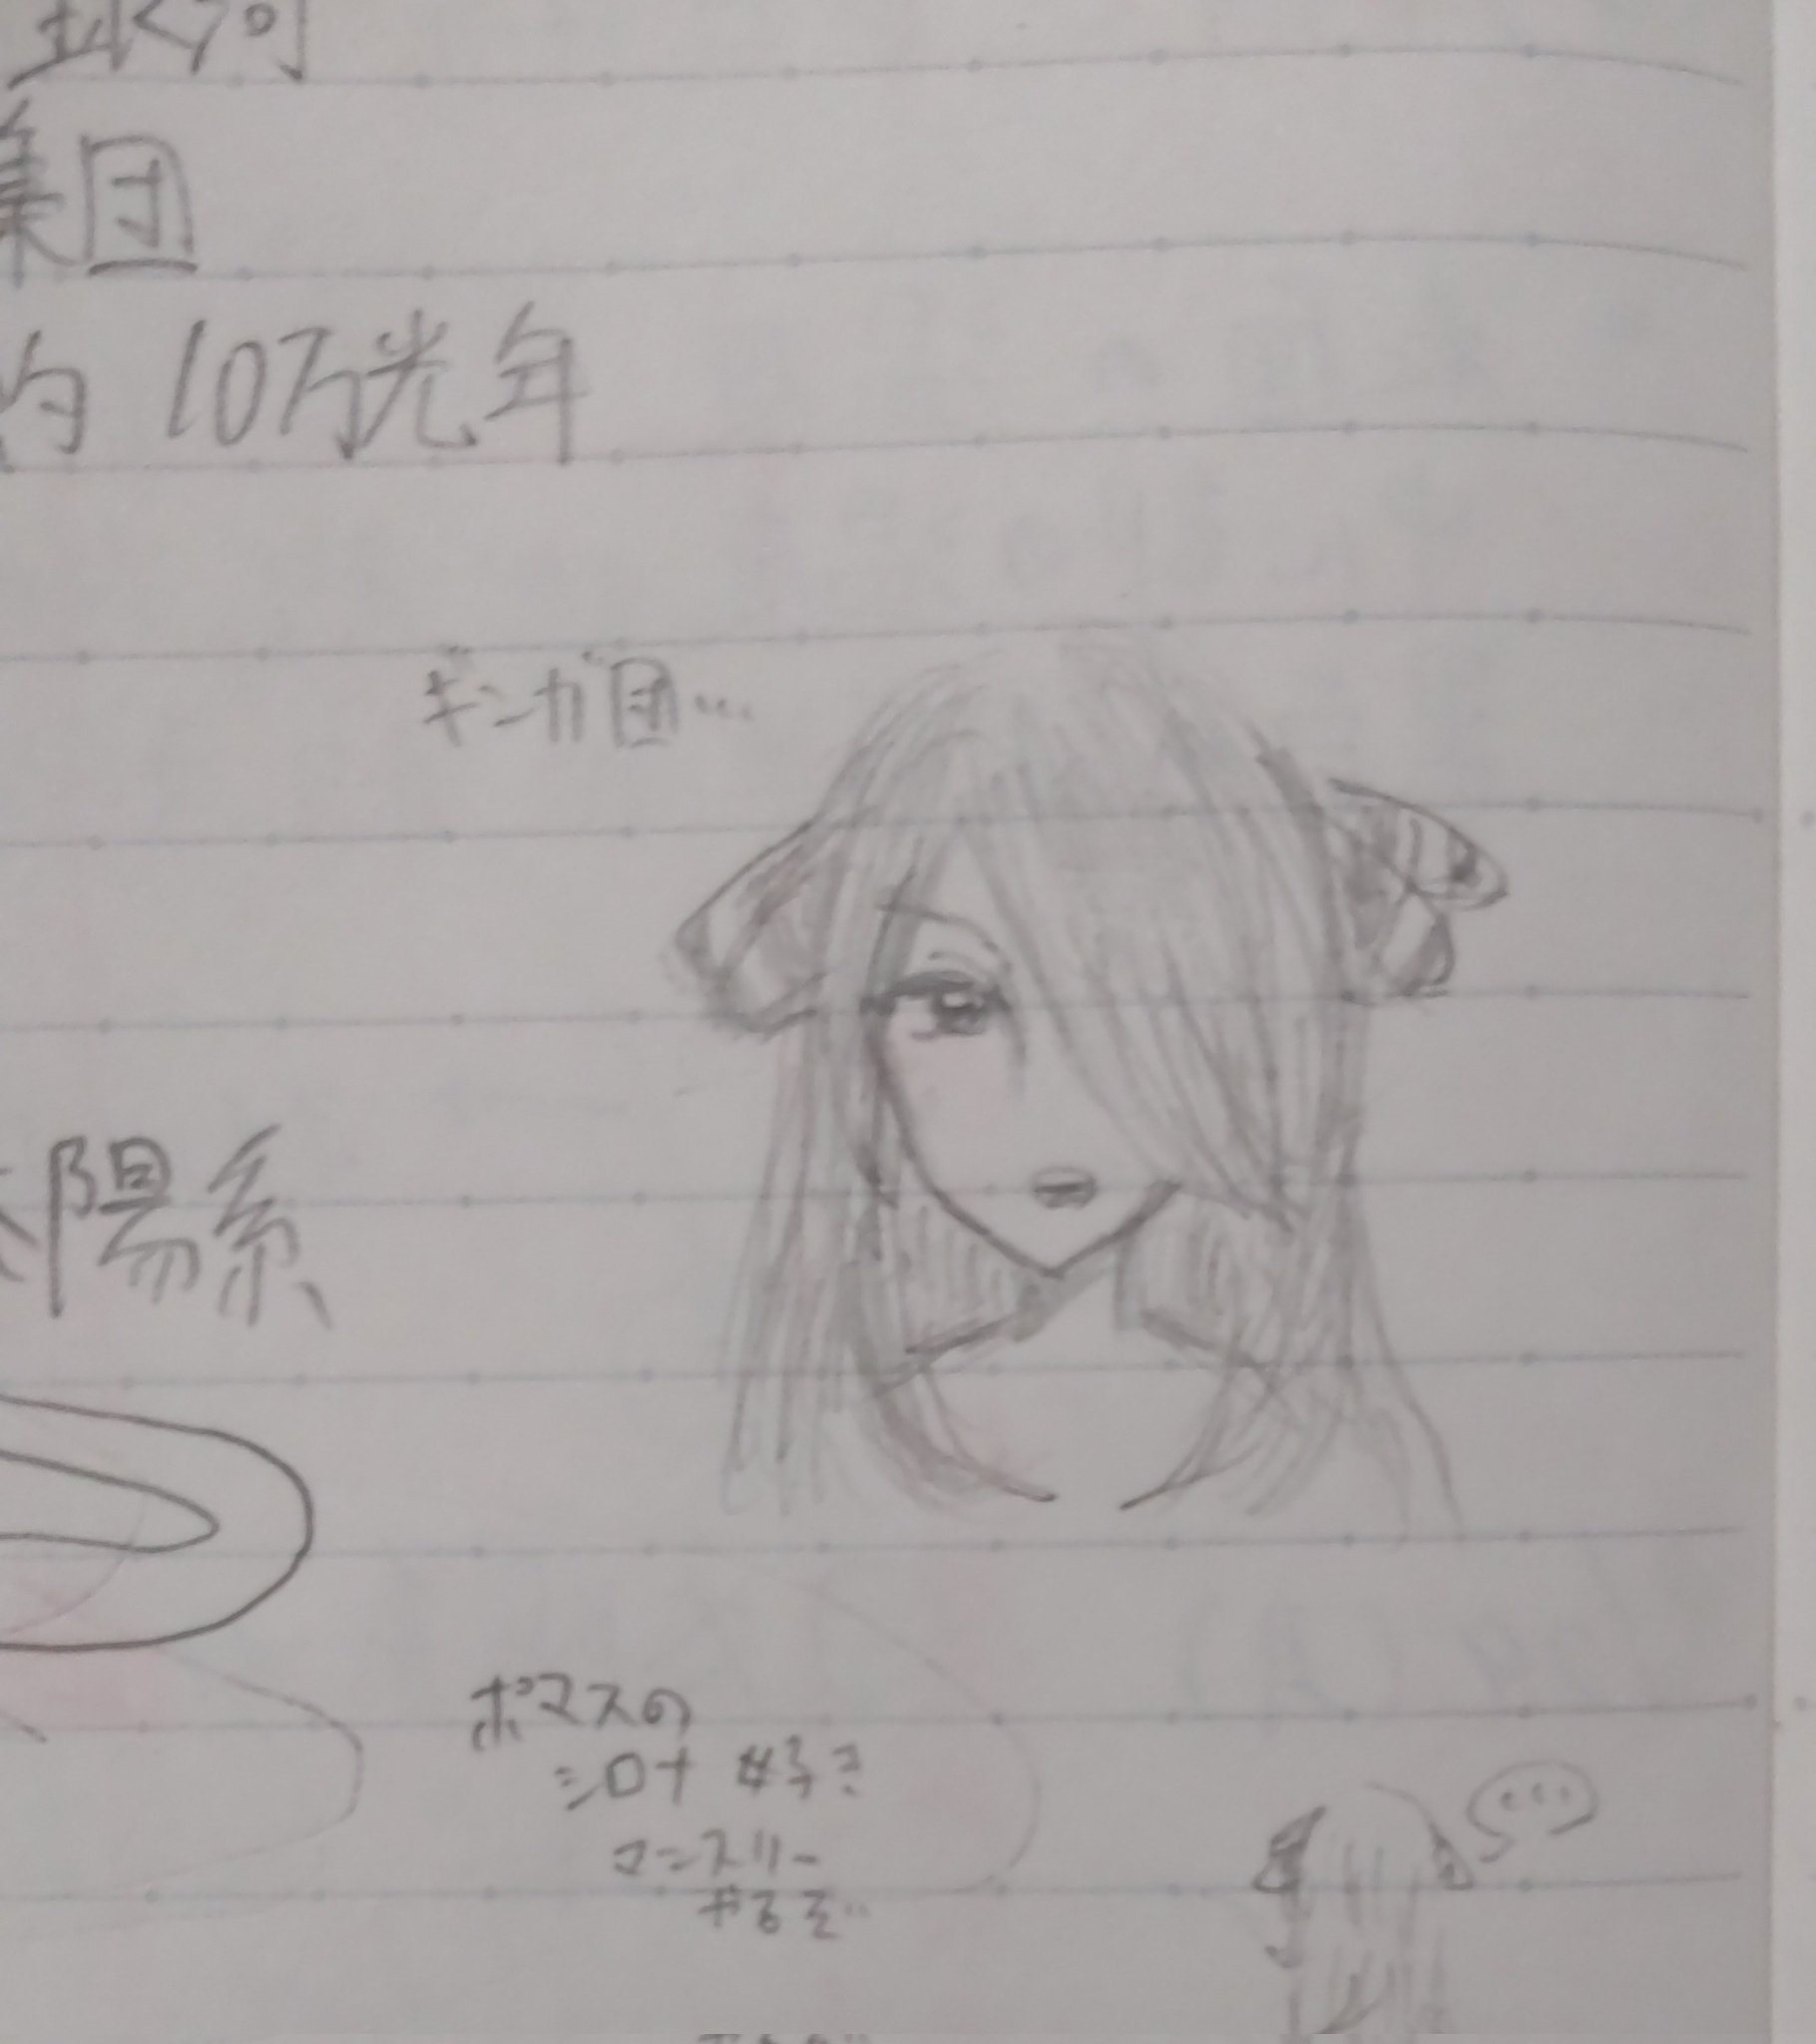 銀河
集団
約 10万光年
ギンガ団…
太陽系
ポマスの
シロナ好き
マンスリー
やるぞ…
…